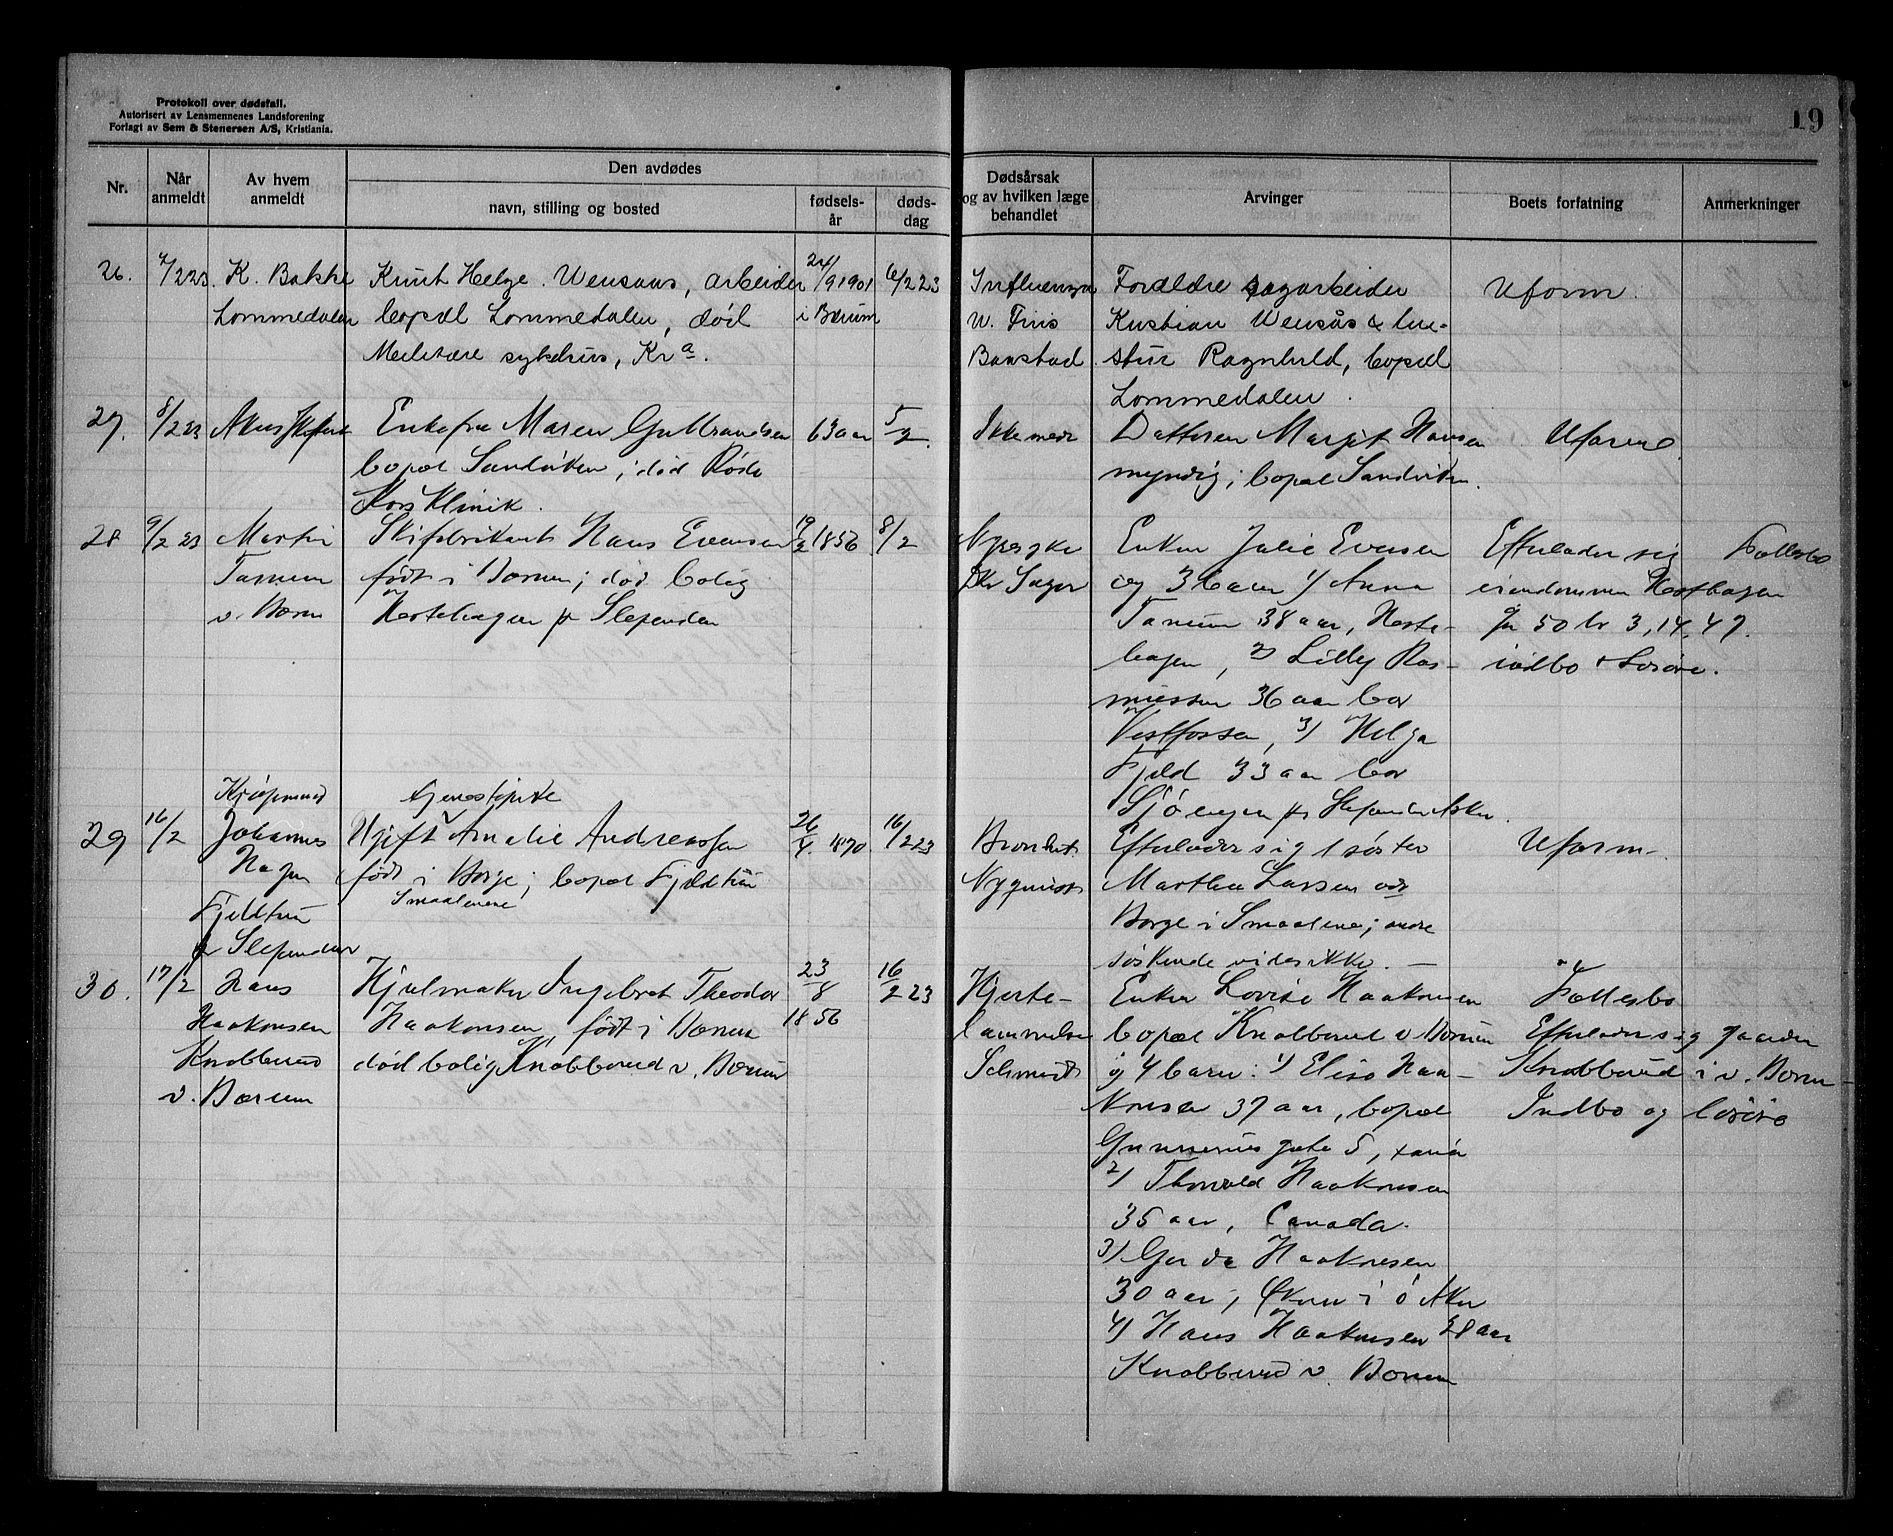 Protokoll over dødsfall.
Autorisert av Lensmennenes Landsforening
Forlagt av Sem & Stenersen A/S, Kristiania.
19
Nr.
Når anmeldt
Av hvem anmeldt
Den avdødes
navn, stilling og bosted
fødsels-
år
døds-
dag
Dødsårsak
og av hvilken læge
behandlet
Arvinger
Boets forfatning
Anmerkninger
26. 7/2 23 K. Bakke
Lommedalen
Knut Helge Wensaas, arbeider
bopæl Lommedalen, død
Militære sykehus, Kr a.
24/9 1901
i Bærum
6/2 23
Influenza
Baustad
Forældre sagarbeider
Kristian Wensås & hu-
stru Ragnhild, bopæl
Lommedalen.
Uform.
27. 8/2 23 Akers
Enkefru Maren Gulbrandsen
bopæl Sandviken; død Røde
Kors Klinik.
63 aar
5/2.
Ikke
Datteren Margit Hansen
myndig; bopæl Sandviken.
Uform
28 9/2 23 Martin
Tanum
v. Bærum
Skifabrikant Hans Evensen
født i Bærum; død bolig
Hestehagen pr Slependen
19/2 1856
8/2
Nyresyke
Dr
Enken Julie Evensen
og 3 barn 1) Anna
Tanum 38 aar, Heste-
hagen, 2) Lilly Ras-
mussen 36 aar bor
Vestfossen, 3) Helga
Fjeld 33 aar bor
pr Slependen Asker.
Efterlader sig
eiendommen Hesthagen
gn 50 br 3, 14, 47.
indbo & løsøre.
Fællesbo
29 16/2
Johannes
Hagen
Fjeldtun
pr Slependen
tjenestepike
Ugift Amalie Andreassen
født i Borge; bopæl Fjeldtun
Smaalenene
26/4 1870
16/2 23
Bronkit.
Nyquist
Efterlader sig 1 søster
Marthea Larsen
Borge i Smaalene; andre
søskende vides ikke. —
Uform—
30. 17/2 Hans
Haakonsen
Knabberud
v. Bærum
Hjulmaker Ingebret Theodor
Haakonsen, født i Bærum
død bolig Knabberud v. Bærum
23/8
1856
16/2 23
Hjerte-
lammelse
Schmidt
Enken Lovise Haakonsen
bopæl Knabberud v Bærum
og 4 barn: 1) Elise Haa-
konsen 37 aar, bopæl
gate 5,
2) Thorvald Haakonsen
35 aar, Canada.
3) Gerda Haakonsen
30 aar, Økern i Ø Aker
4) Hans Haakonsen 28 aar
Knabberud v. Bærum
Fællesbo
Efterlader sig gaarden
Knabberud i v. Bærum —
Indbo og løsøre